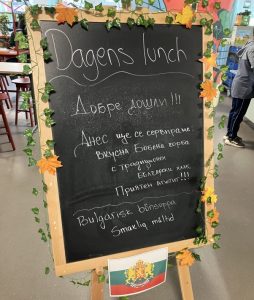 Dagens lunch
Добре дошли!!!
Днес ще се сервираме
вкусна Бобена чорба
с традиционен
Български хляб.
Приятен апетит!!!
Bulgarisk bönsoppa
Smaklig måltid